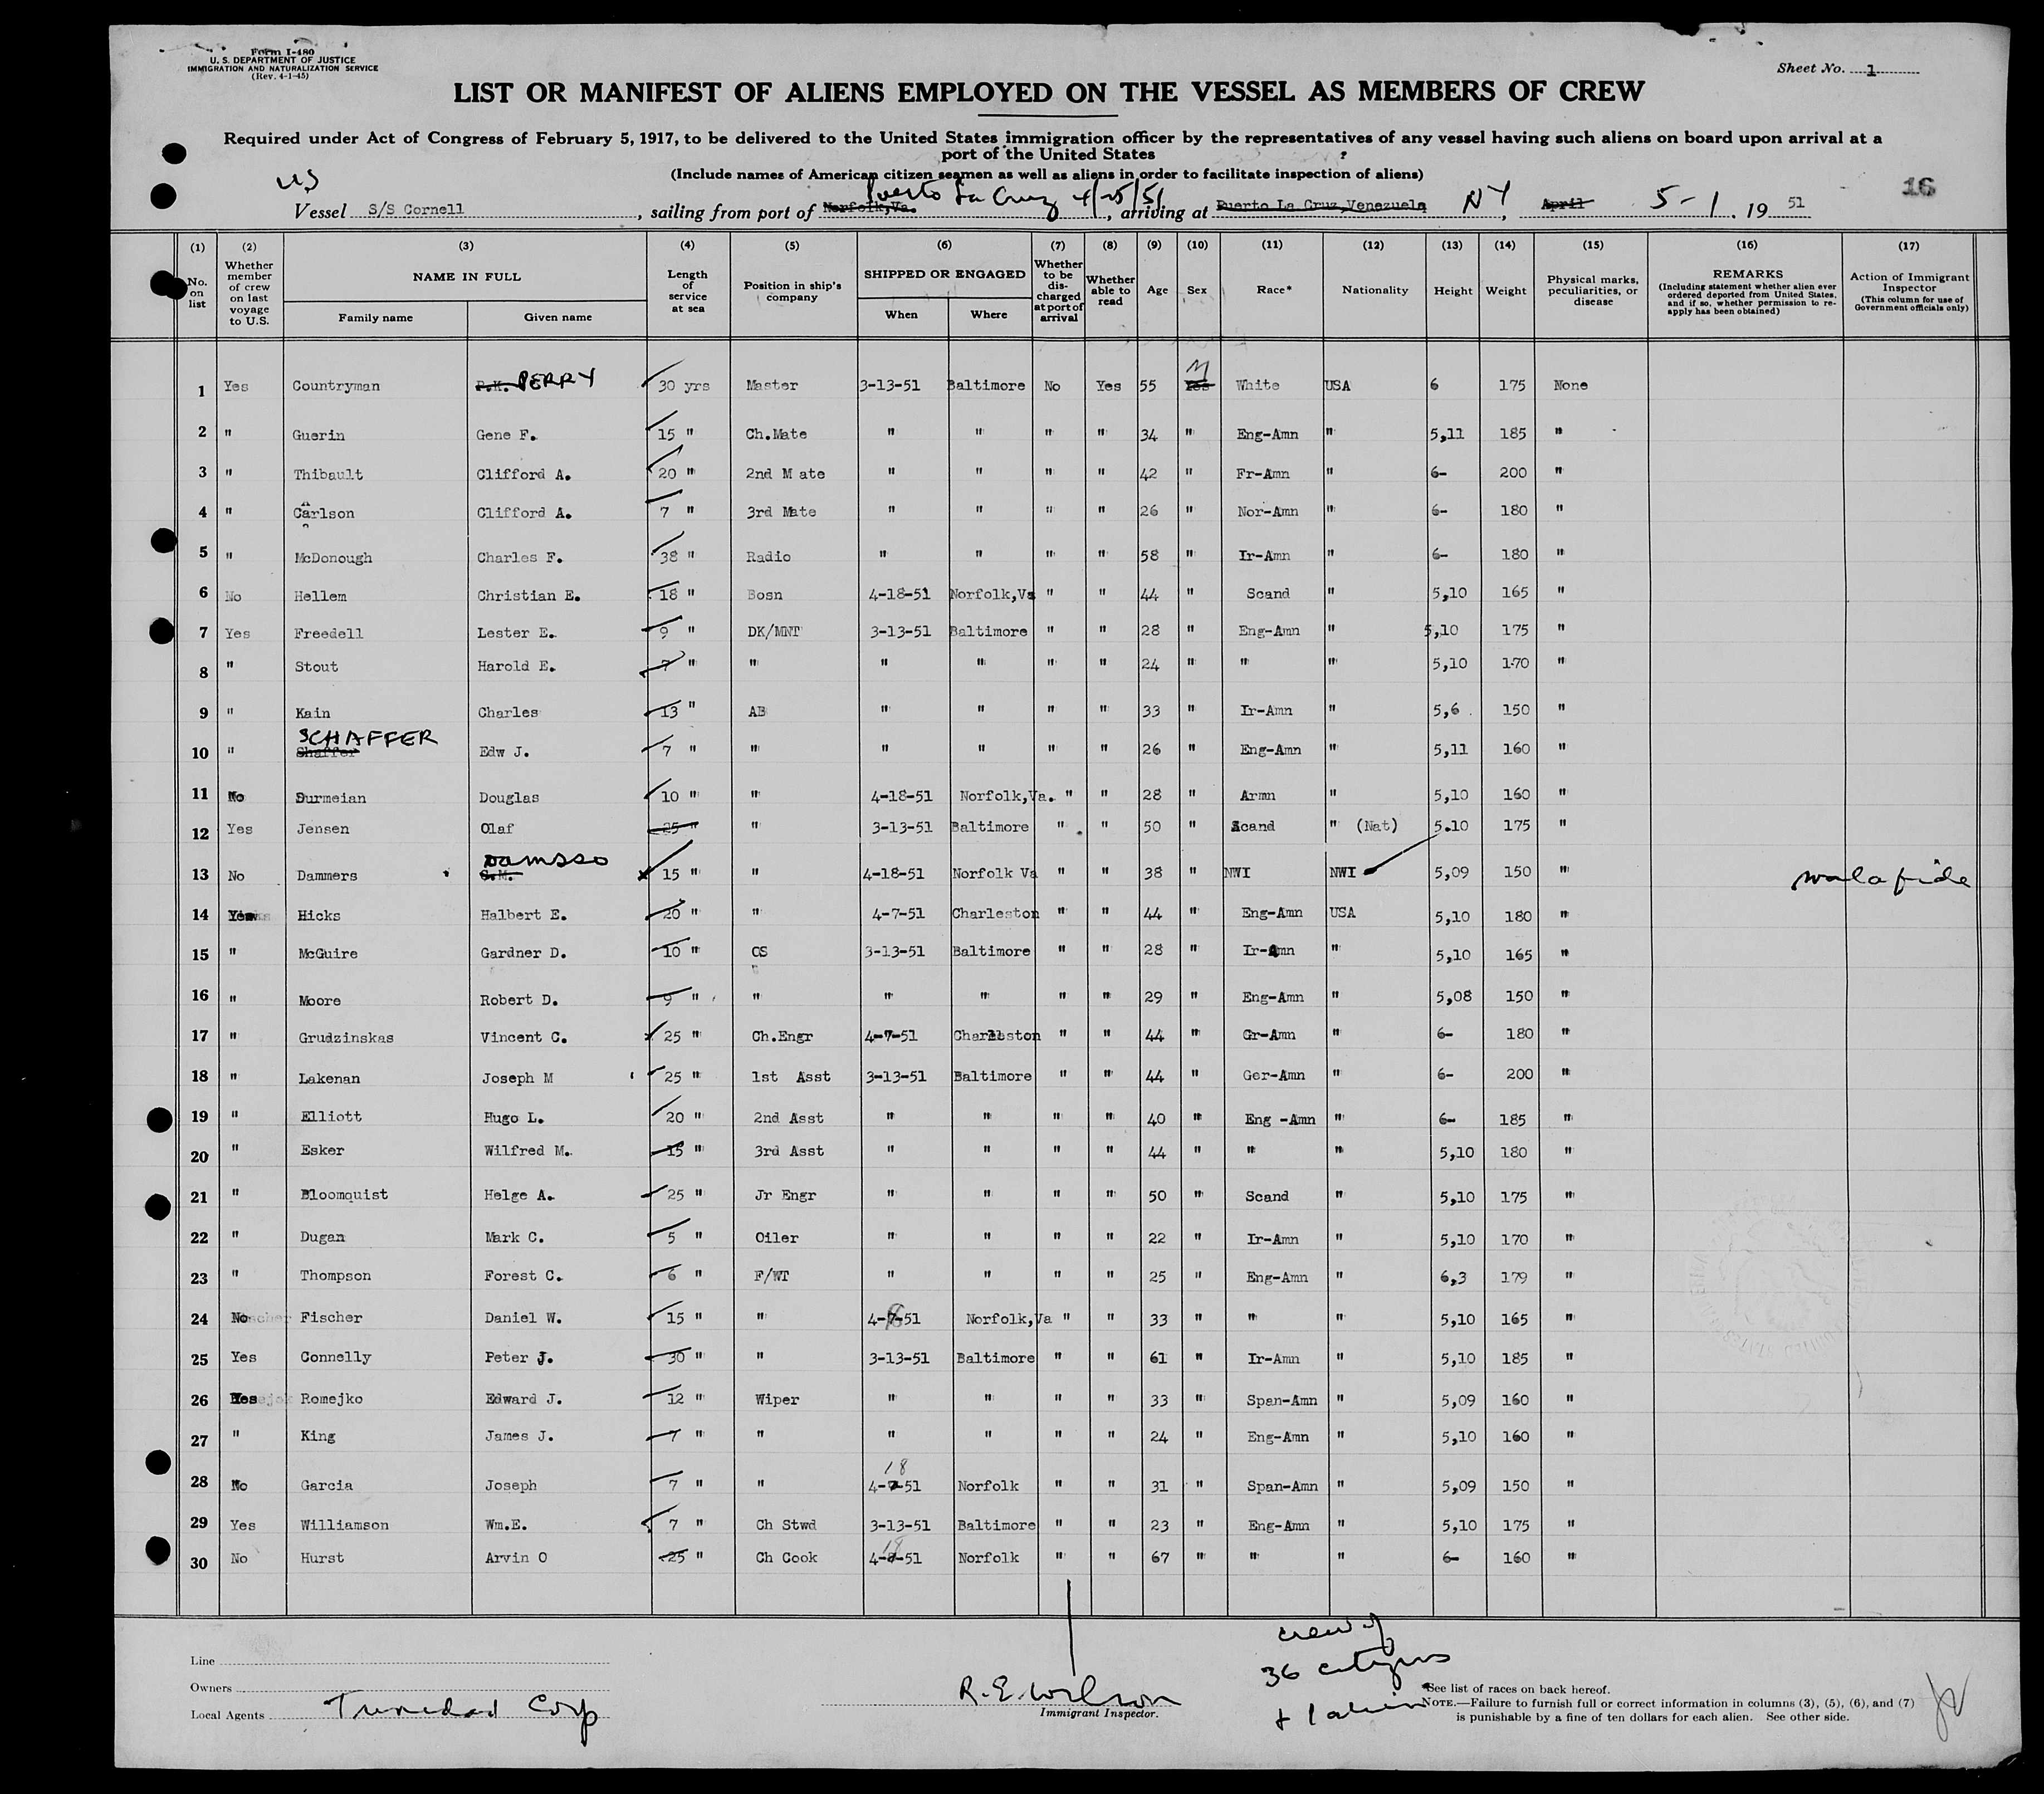 Form I-480
U. S. DEPARTMENT OF JUSTICE
IMMIGRATION AND NATURALIZATION SERVICE
(Rev. 4-1-45)
Sheet No. 1
LIST OR MANIFEST OF ALIENS EMPLOYED ON THE VESSEL AS MEMBERS OF CREW
Required under Act of Congress of February 5, 1917, to be delivered to the United States immigration officer by the representatives of any vessel having such aliens on board upon arrival at a
port of the United States
(Include names of American citizen seamen as well as aliens in order to facilitate inspection of aliens)
16
US Puerto La Cruz 4/25/51
Vessel S/S Cornell, sailing from port of Norfolk,Va., arriving at Puerto La Cruz,Venezuela NY, April 5-1, 19 51
(1) (2) (3) (4) (5) (6) (7) (8) (9) (10) (11) (12) (13) (14) (15) (16) (17)
No. on list
Whether member of crew on last voyage to U.S.
NAME IN FULL
Family name
Given name
Length of service at sea
Position in ship's company
SHIPPED OR ENGAGED
When
Where
Whether to be discharged at port of arrival
Whether able to read
Age
Sex
Race*
Nationality
Height
Weight
Physical marks, peculiarities, or disease
REMARKS
(Including statement whether alien ever ordered deported from United States, and if so, whether permission to re-apply has been obtained)
Action of Immigrant Inspector
(This column for use of Government officials only)
1 Yes Countryman P.K. PERRY 30 yrs Master 3-13-51 Baltimore No Yes 55 Yes M White USA 6 175 None
2 " Guerin Gene F. 15 " Ch.Mate " " " " 34 " Eng-Amn " 5,11 185 "
3 " Thibault Clifford A. 20 " 2nd M ate " " " " 42 " Fr-Amn " 6- 200 "
4 " Carlson Clifford A. 7 " 3rd Mate " " " " 26 " Nor-Amn " 6- 180 "
5 " McDonough Charles F. 38 " Radio " " " " 58 " Ir-Amn " 6- 180 "
6 No Hellem Christian E. 18 " Bosn 4-18-51 Norfolk,Va " " 44 " Scand " 5,10 165 "
7 Yes Freedell Lester E. 9 " DK/MNT 3-13-51 Baltimore " " 28 " Eng-Amn " 5,10 175 "
8 " Stout Harold E. 7 " " " " " " 24 " " " 5,10 170 "
9 " Kain Charles 13 " AB " " " " 33 " Ir-Amn " 5,6 150 "
10 " Shaffer SCHAFFER Edw J. 7 " " " " " " 26 " Eng-Amn " 5,11 160 "
11 No Surmeian Douglas 10 " " 4-18-51 Norfolk,Va. " " 28 " Armn " 5,10 160 "
12 Yes Jensen Olaf 25 " " 3-13-51 Baltimore " " 50 " Scand " (Nat) 5.10 175 "
13 No Dammers S.M. DAMSSO 15 " " 4-18-51 Norfolk Va " " 38 " NWI NWI 5,09 150 " malafide
14 Yes Hicks Halbert E. 20 " " 4-7-51 Charleston " " 44 " Eng-Amn USA 5,10 180 "
15 " McGuire Gardner D. 10 " OS 3-13-51 Baltimore " " 28 " Ir-Amn " 5,10 165 "
16 " Moore Robert D. 9 " " " " " " 29 " Eng-Amn " 5,08 150 "
17 " Grudzinskas Vincent C. 25 " Ch.Engr 4-7-51 Charleston " " 44 " Gr-Amn " 6- 180 "
18 " Lakenan Joseph M 25 " 1st Asst 3-13-51 Baltimore " " 44 " Ger-Amn " 6- 200 "
19 " Elliott Hugo L. 20 " 2nd Asst " " " " 40 " Eng -Amn " 6- 185 "
20 " Esker Wilfred M. 15 " 3rd Asst " " " " 44 " " " 5,10 180 "
21 " Bloomquist Helge A. 25 " Jr Engr " " " " 50 " Scand " 5,10 175 "
22 " Dugan Mark C. 5 " Oiler " " " " 22 " Ir-Amn " 5,10 170 "
23 " Thompson Forest C. 6 " F/WT " " " " 25 " Eng-Amn " 6,3 179 "
24 No Fischer Daniel W. 15 " " 4-7-51 Norfolk,Va " " 33 " " " 5,10 165 "
25 Yes Connelly Peter J. 30 " " 3-13-51 Baltimore " " 61 " Ir-Amn " 5,10 185 "
26 Yes Romejko Edward J. 12 " Wiper " " " " 33 " Span-Amn " 5,09 160 "
27 " King James J. 7 " " " " " " 24 " Eng-Amn " 5,10 160 "
28 No Garcia Joseph 7 " " 4-18-51 Norfolk " " 31 " Span-Amn " 5,09 150 "
29 Yes Williamson Wm.E. 7 " Ch Stwd 3-13-51 Baltimore " " 23 " Eng-Amn " 5,10 175 "
30 No Hurst Arvin O 25 " Ch Cook 4-18-51 Norfolk " " 67 " " " 6- 160 "
Line
Owners
Local Agents Trinidad Corp
R.E. Wilson
Immigrant Inspector.
crew of
36 citizens
+ 1 alien
*See list of races on back hereof.
NOTE.—Failure to furnish full or correct information in columns (3), (5), (6), and (7)
is punishable by a fine of ten dollars for each alien. See other side.